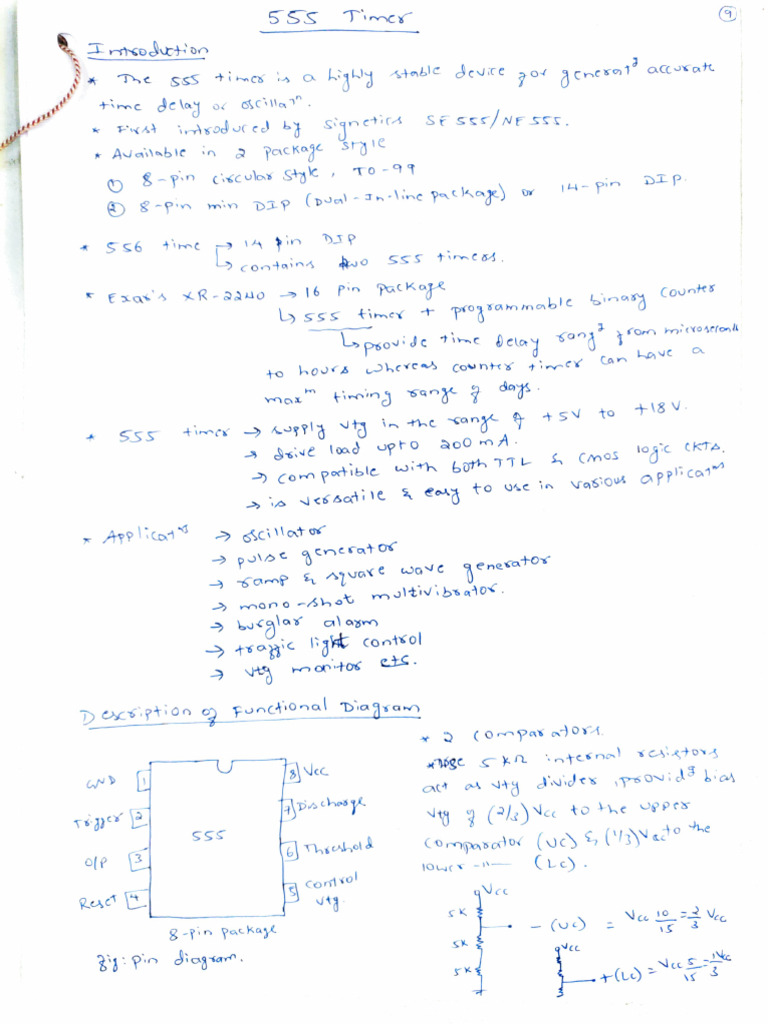 555 Timer
9
Introduction
* The 555 timer is a highly stable device for generatᵍ accurate
time delay or oscillatⁿ.
* First introduced by Signetics SE555/NE555.
* Available in 2 package style
① 8-pin circular style, TO-99
② 8-pin min DIP (Dual-In-line package) or 14-pin DIP.
* 556 time → 14 pin DIP
↳ contains two 555 timers.
* Exar's XR-2240 → 16 pin package
↳ 555 timer + programmable binary counter
↳ provide time delay rangᵍ from microseconds
to hours whereas counter timer can have a
maxᵐ timing range of days.
* 555 timer → supply vtg in the range of +5V to +18V.
→ drive load upto 200 mA.
→ compatible with both TTL & CMOS logic CKTs.
→ is versatile & easy to use in various applicatⁿˢ
* Applicatⁿˢ → oscillator
→ pulse generator
→ ramp & square wave generator
→ mono-shot multivibrator.
→ burglar alarm
→ traffic light control
→ vtg monitor etc.
Description of Functional Diagram
GND 1
Trigger 2
O/P 3
Reset 4
555
8 Vcc
7 Discharge
6 Threshold
5 Control
vtg
8-pin package
fig: pin diagram.
* 2 comparators.
* 5 kΩ internal resistors
act as vtg divider, providᵍ bias
vtg of (2/3)Vcc to the upper
comparator (UC) & (1/3)Vcc to the
lower -"- (LC).
Vcc
5K
5K
5K
- (UC) = Vcc 10/15 = 2/3 Vcc
Vcc
+(LC) = Vcc 5/15 = 1/3 Vcc